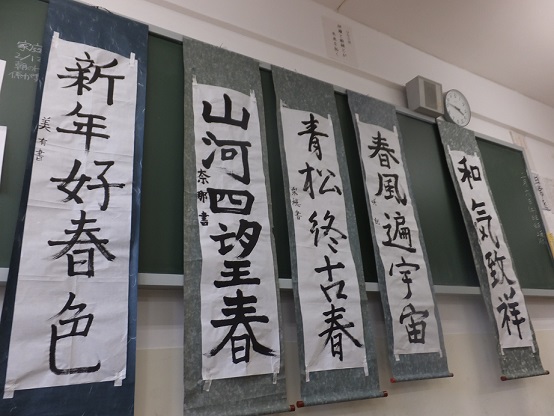 新年好春色
美有書
山河四望春
奈那書
青松終古春
春風遍宇宙
和気致祥